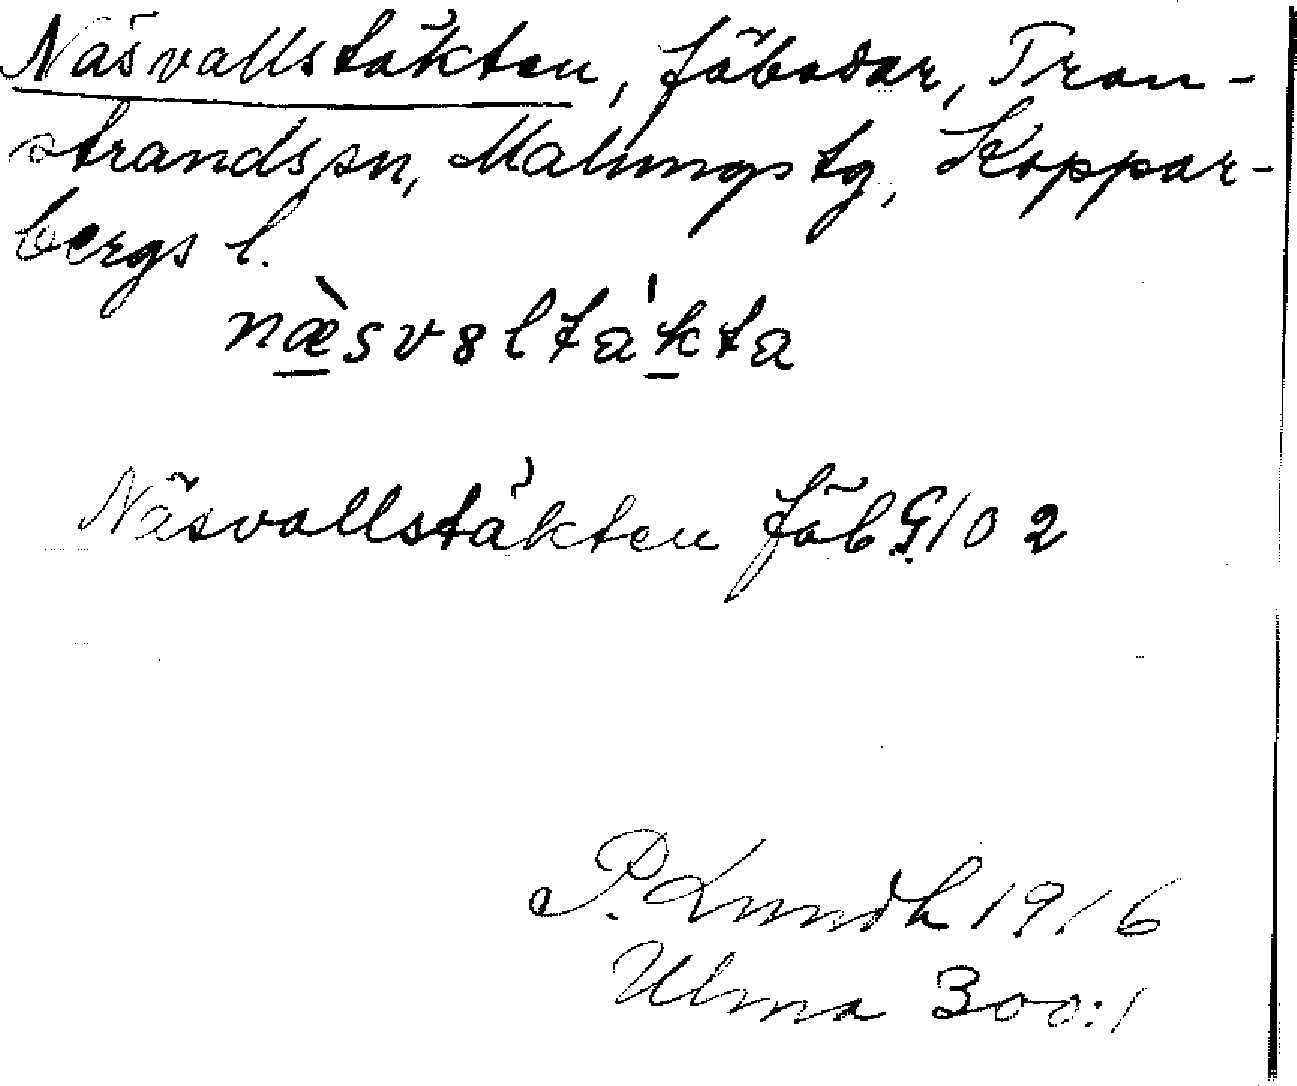 Näsvallstäkten, fäbodar, Tran-
strandssn, Malungs tg, Koppar-
bergs l.
næ̀svȣltàkta
Näsvallstäkten fäb G102
P. Lundh 1916
Ulma 300:1